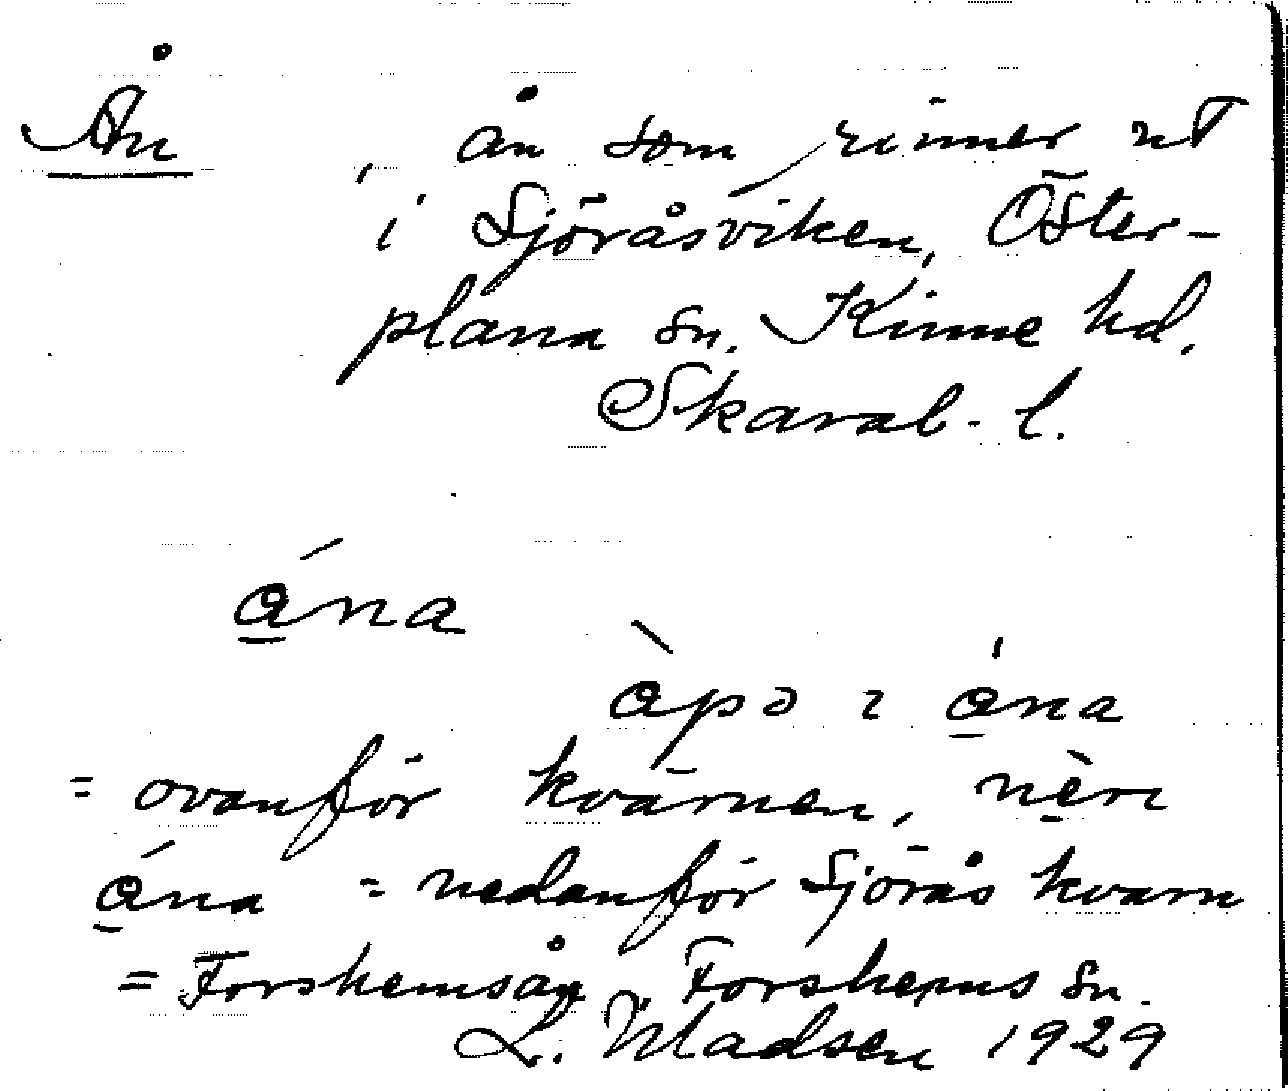 Ån , ån som rinner ut
i Sjöråsviken, Öster-
plana sn. Kinne hd.
Skarab. l.
á̱na
àpə ɩ á̱na
= ovanför kvarnen, nè̱rɩ
á̱na = nedanför Sjörås kvarn
= Forshemsån Forshems sn.
L. Madsen 1929